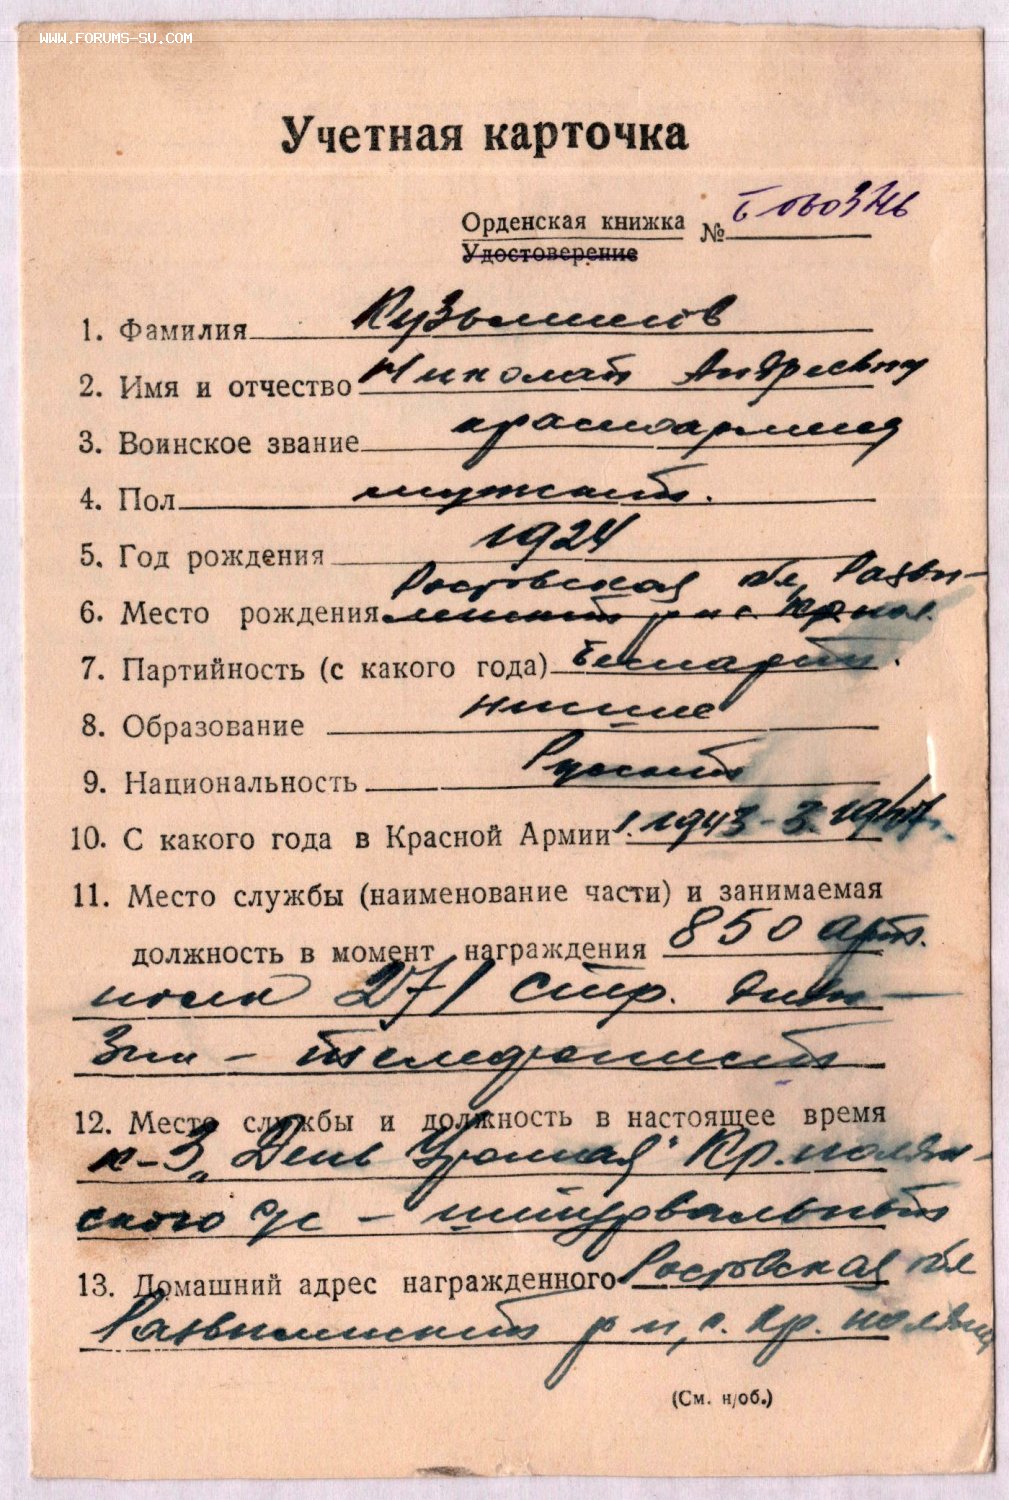 WWW.FORUMS-SU.COM
Учетная карточка
Орденская книжка №
Удостоверение
1. Фамилия Кузьминов
2. Имя и отчество Николай Андреевич
3. Воинское звание красноармеец
4. Пол мужской.
5. Год рождения 1924
Ростовская обл, Разви-
6. Место рождения ленский р-н с
7. Партийность (с какого года) беспарт.
8. Образование низшее
9. Национальность Русский
10. С какого года в Красной Армии 1.1943-3.1947г.
11. Место службы (наименование части) и занимаемая
должность в момент награждения 850 арт.
полк 271 стр. диви-
зии - телефонист
12. Место службы и должность в настоящее время
к-з „День Урожая" Кр.полян-
ского с/с - штурвальный
13. Домашний адрес награжденного Ростовская обл
Развиленский р-н, с. Кр. поляна
(См. н/об.)